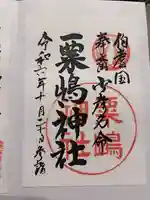 伯耆国
奉拝 少彦名命
粟嶋神社
令和六年十月二十日参詣
粟嶋